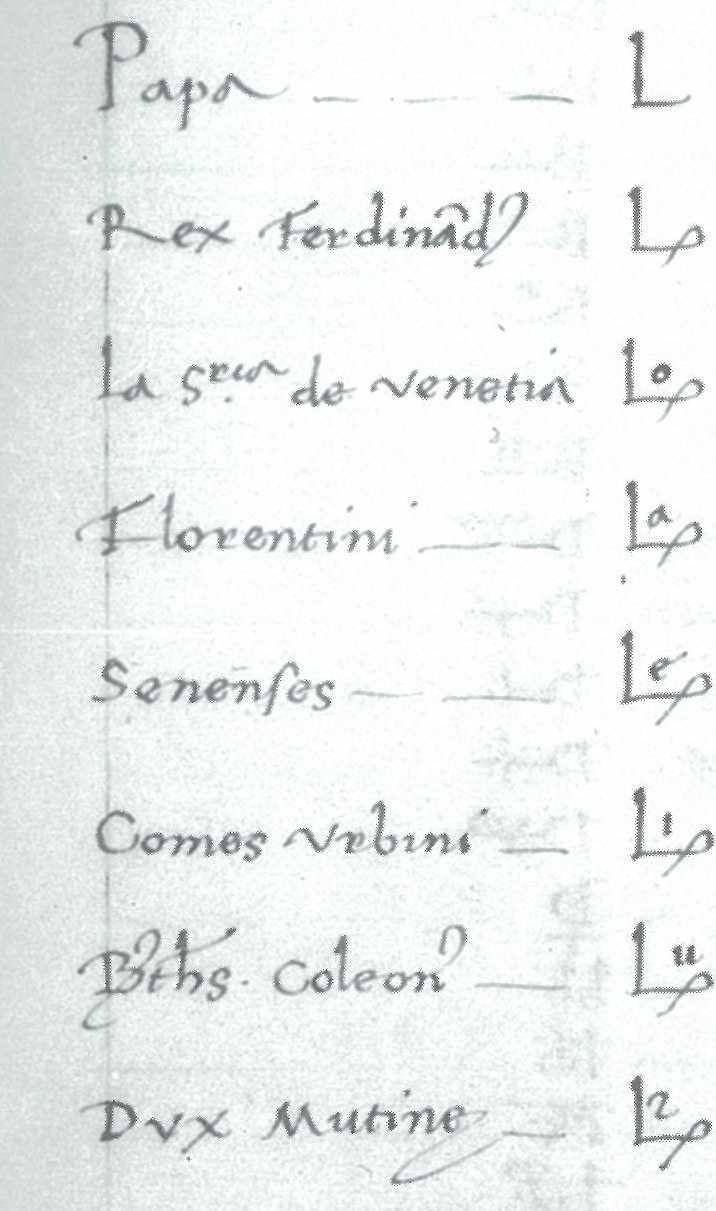 Papa — — — L
Rex Ferdinãdꝰ Lꝭ
La S.ria de venetia Lꝭ o
Florentini — Lꝭ a
Senenses — — Lꝭ e
Comes vrbini — Lꝭ i
Coleonꝰ — Lꝭ u
Dvx Mutine — Lꝭ 2